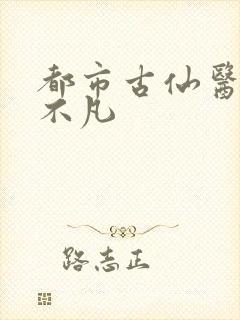 都市古仙醫
不凡
路志正